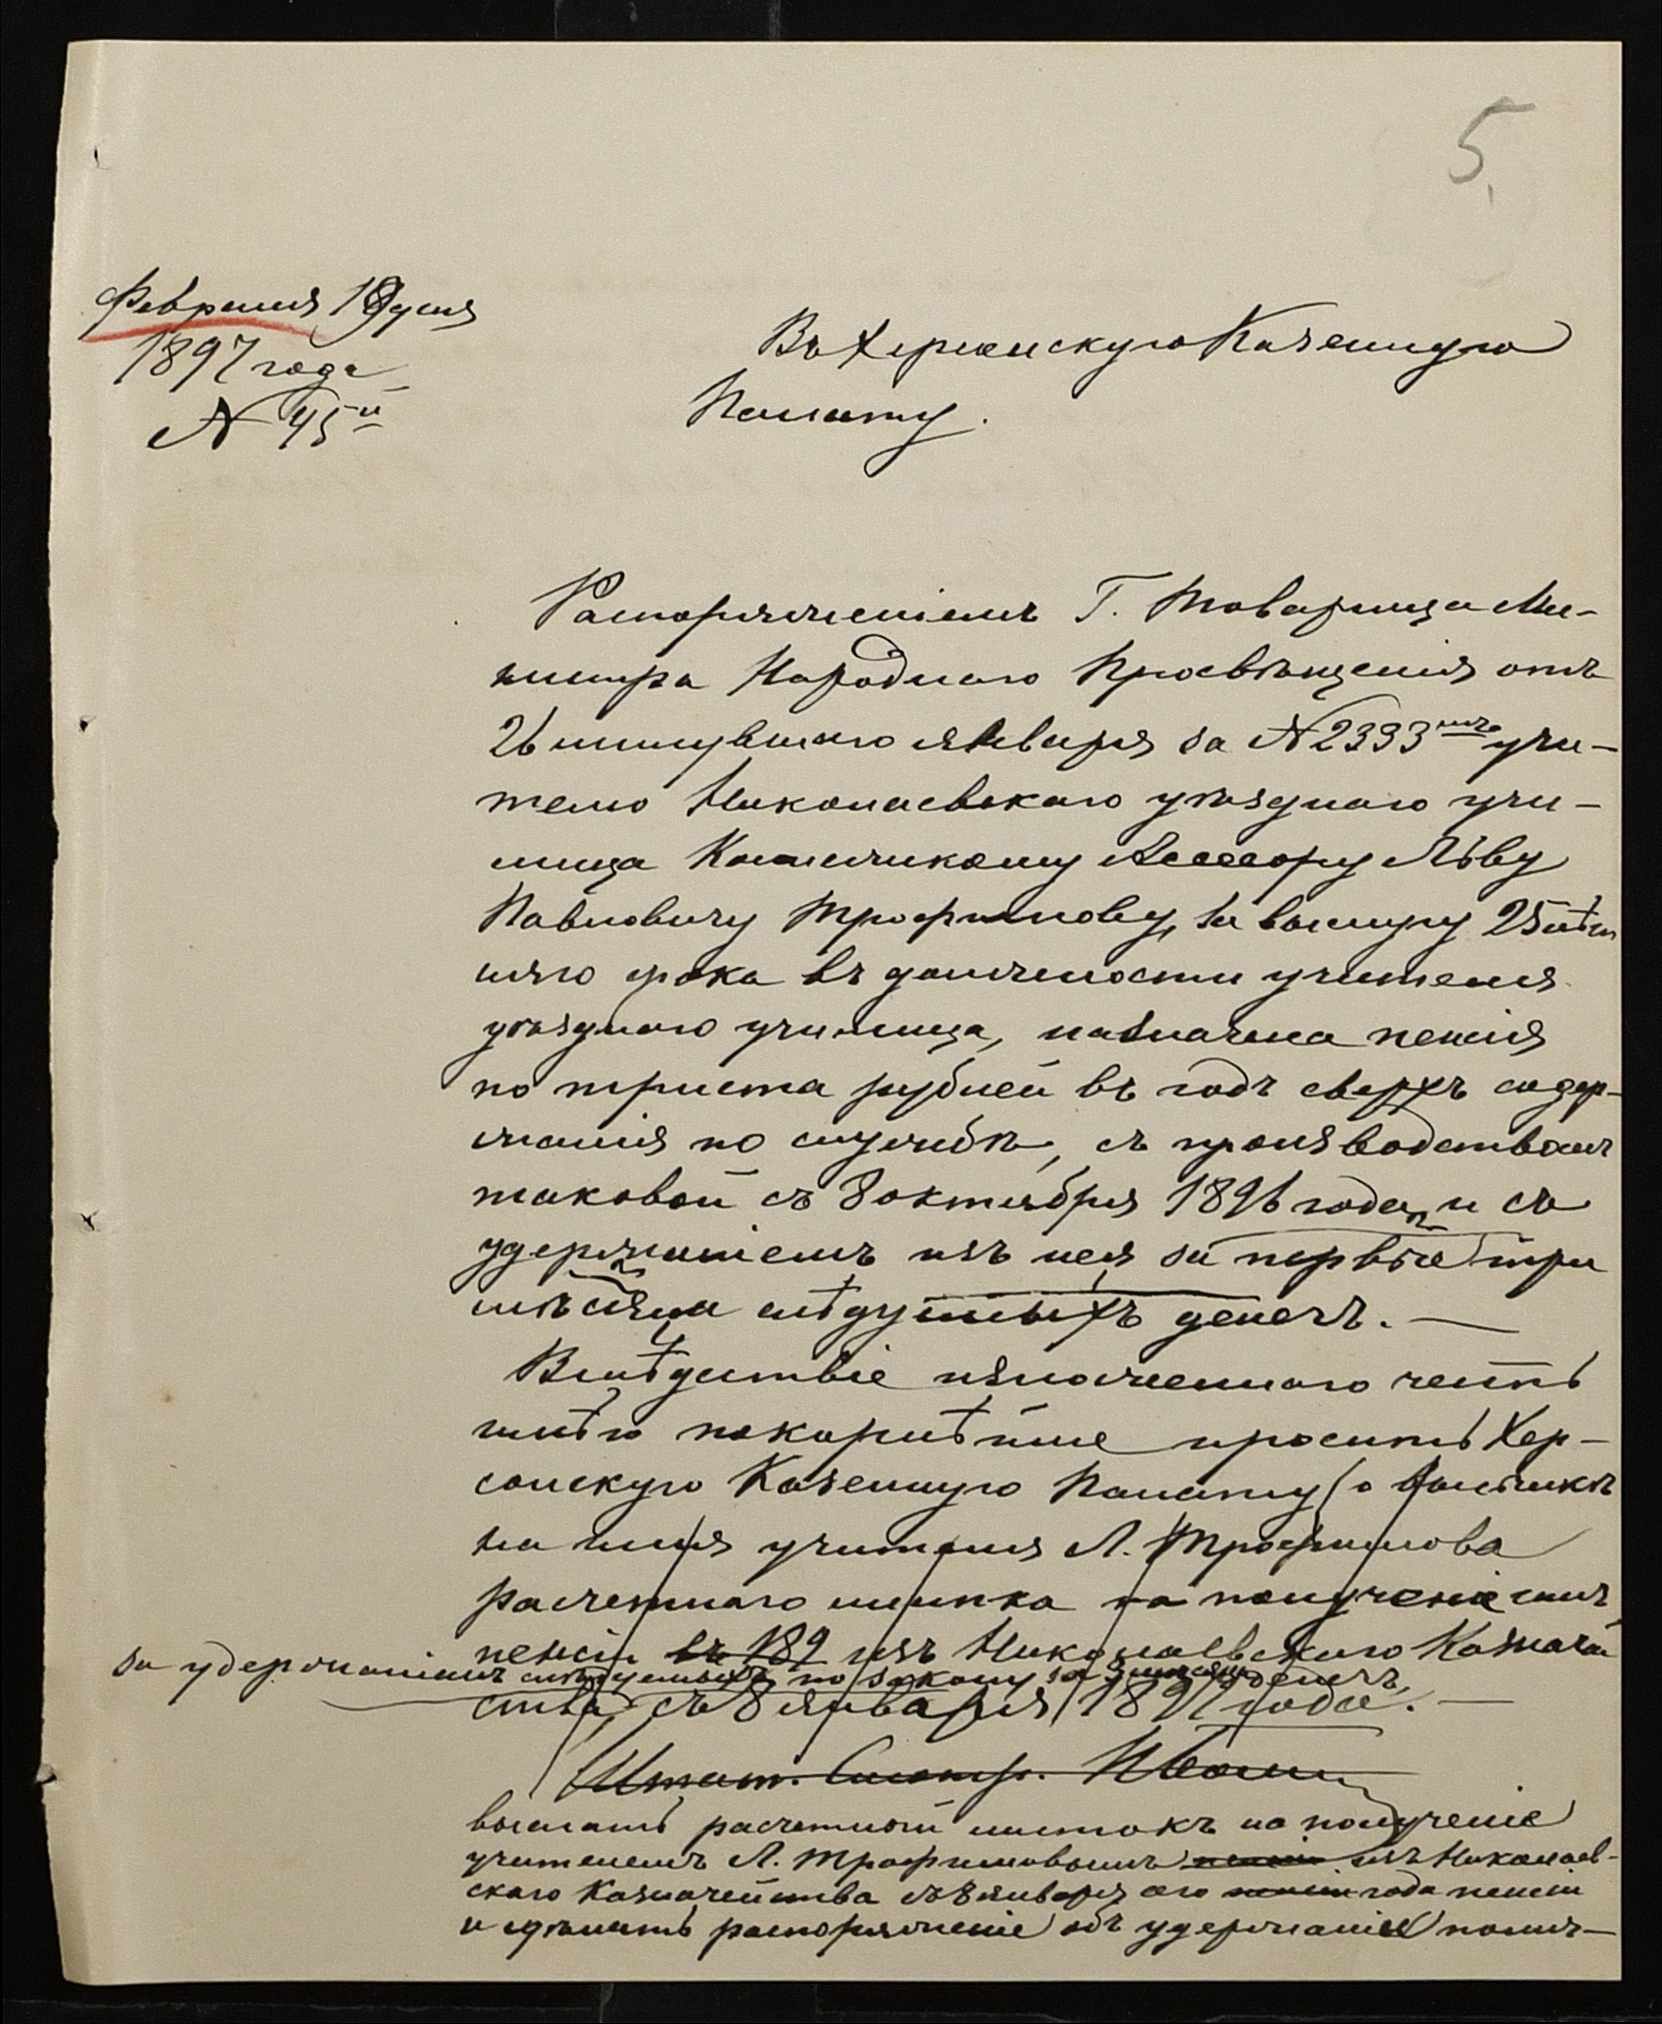 5.
Февраля 18 дня
1897 года
№ 45й
Въ Херсонскую Казенную
Палату.
Распоряженіемъ Г. Товарища Ми-
нистра Народнаго Просвѣщенія отъ
26 минувшаго января за № 2333мъ учи-
телю Николаевскаго уѣзднаго учи-
лища Коллежскому Ассесору Льву
Павловичу Трофимову, за выслугу 25 лѣт
няго срока въ должности учителя
уѣзднаго училища, назначена пенсія
по триста рублей въ годъ сверхъ содер-
жанія по службѣ, съ производствомъ
таковой съ 8 октября 1896 года и съ
удержаніемъ изъ нея за первые три
мѣсяца слѣдуемыхъ денегъ. —
Вслѣдствіе изложеннаго честь
имѣю покорнѣйше просить Хер-
сонскую Казенную Палату о высылкѣ
на имя учителя Л. Трофимова
расчетнаго листка на полученіе имъ
пенсіи въ 189 изъ Николаевскаго Казначей
за удержаніемъ слѣдуемыхъ по закону за 3 мѣсяца денегъ,
ства съ 8 января 1897 года. —
Штат. Смотр.
выслать расчетный листокъ на полученіе
учителемъ Л. Трофимовымъ пенсіи изъ Николаев-
скаго Казначейства съ 8 января сего года пенсіи
и сдѣлать распоряженіе объ удержаніи полит-